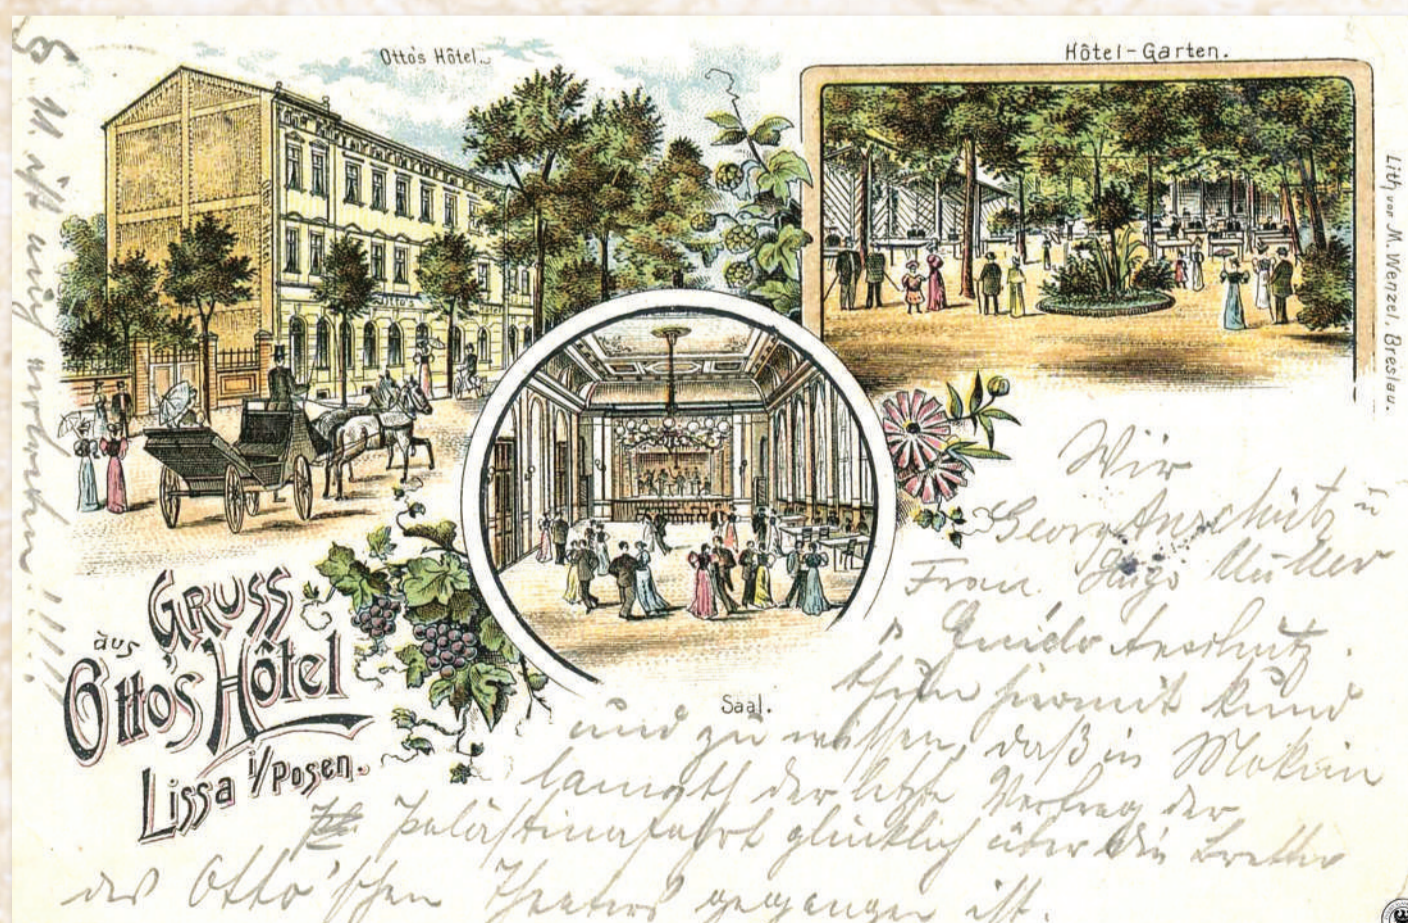 Otto's Hôtel.
Hôtel-Garten.
Lith von M. Wenzel, Breslau.
OTTO'S HOTEL
Saal.
GRUSS
aus
Otto's Hôtel
Lissa i/Posen.
Wir
Georg Anschütz u
Frau. Hugo Müller
Guido Anschütz.
thun hiermit kund
und zu wissen, daß in
der letzte Vortrag der
Palästinafahrt glücklich über die Bretter
des Otto'schen Theaters gegangen ist.